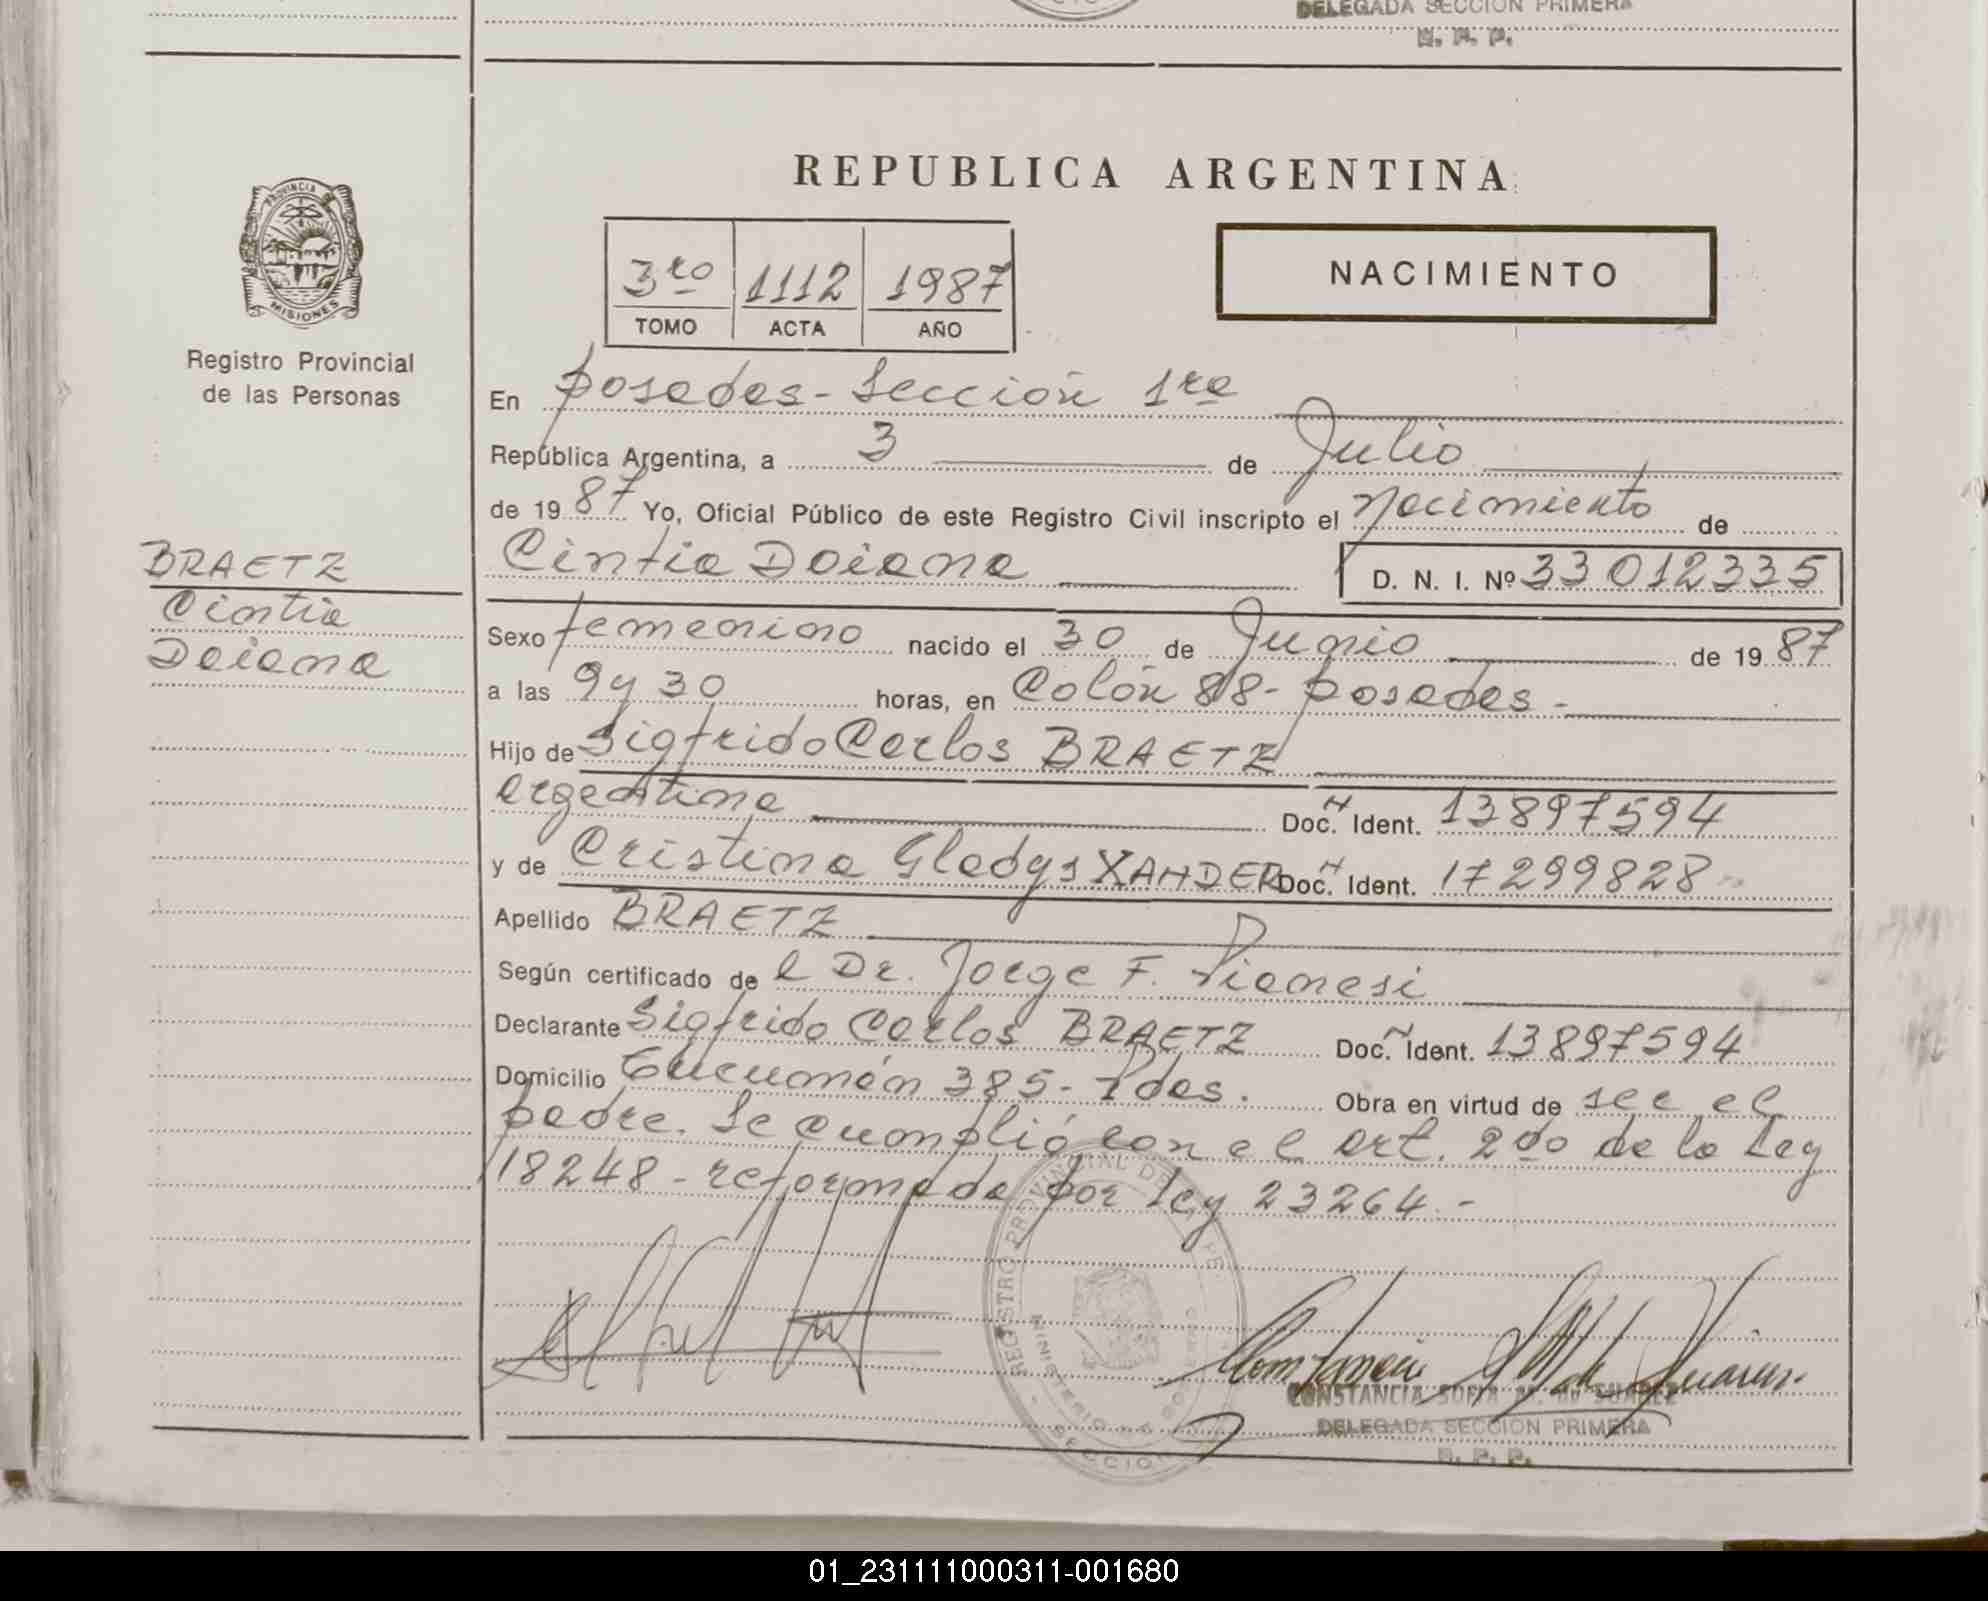 DELEGADA SECCION PRIMERA
R. P. P.
PROVINCIA
MISIONES
Registro Provincial
de las Personas
BRAETZ
Cintia
Daiana
REPUBLICA ARGENTINA
3ro 1112 1987
TOMO ACTA AÑO
NACIMIENTO
En Posadas - Sección 1ra
República Argentina, a 3 de Julio
de 1987 Yo, Oficial Público de este Registro Civil inscripto el Nacimiento de
Cintia Daiana D. N. I. Nº 33 012335
Sexo femenino nacido el 30 de Junio de 1987
a las 9 y 30 horas, en Colón 88 - Posadas -
Hijo de Sigfrido Carlos BRAETZ
argentina Doc. Ident. 13897594
y de Cristina Gladys XANDER Doc. Ident. 17299828
Apellido BRAETZ
Según certificado de l Dr. Jorge F. Pianesi
Declarante Sigfrido Carlos BRAETZ Doc. Ident. 13897594
Domicilio Tucumán 385 - Pdas. Obra en virtud de ser el
padre. Se cumplió con el art. 2do de la Ley
18248 - reformada por ley 23264. -
REGISTRO PROVINCIAL DE
MINISTERIO
SECCION
CONSTANCIA SOFIA M. de SUAREZ
DELEGADA SECCION PRIMERA
R. P. P.
01_231111000311-001680